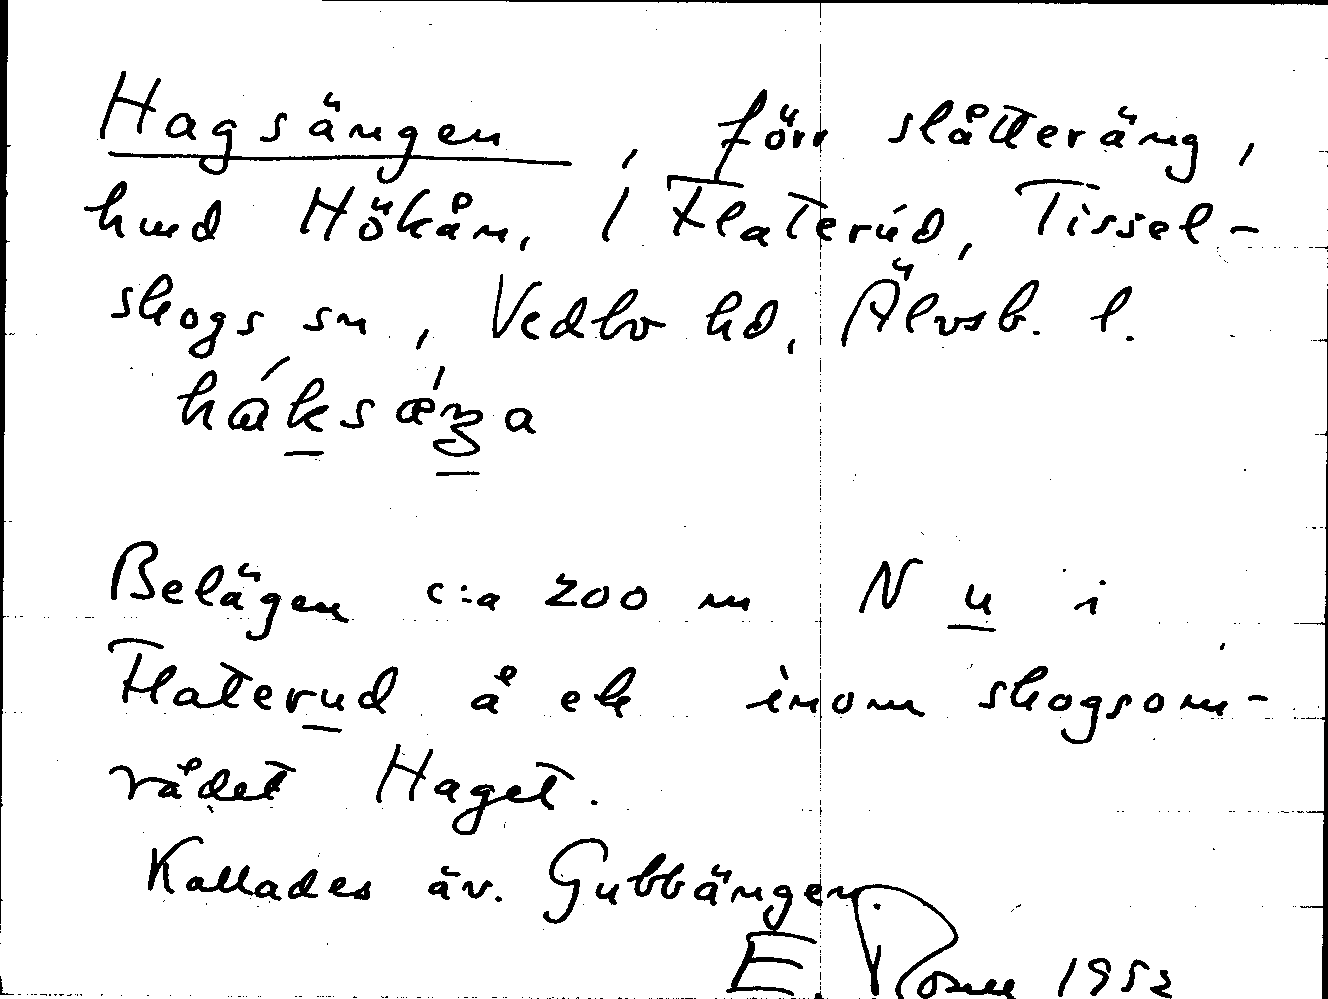 Hagsängen, förr slåtteräng,
hmd Hökån, i Flaterud, Tissel-
skogs sn, Vedbo hd, Älvsb. l.
Belägen c:a 200 m N u i
Flaterud å ek inom skogsom-
rådet Haget.
Kallades äv. Gubbängen.
E. 1952